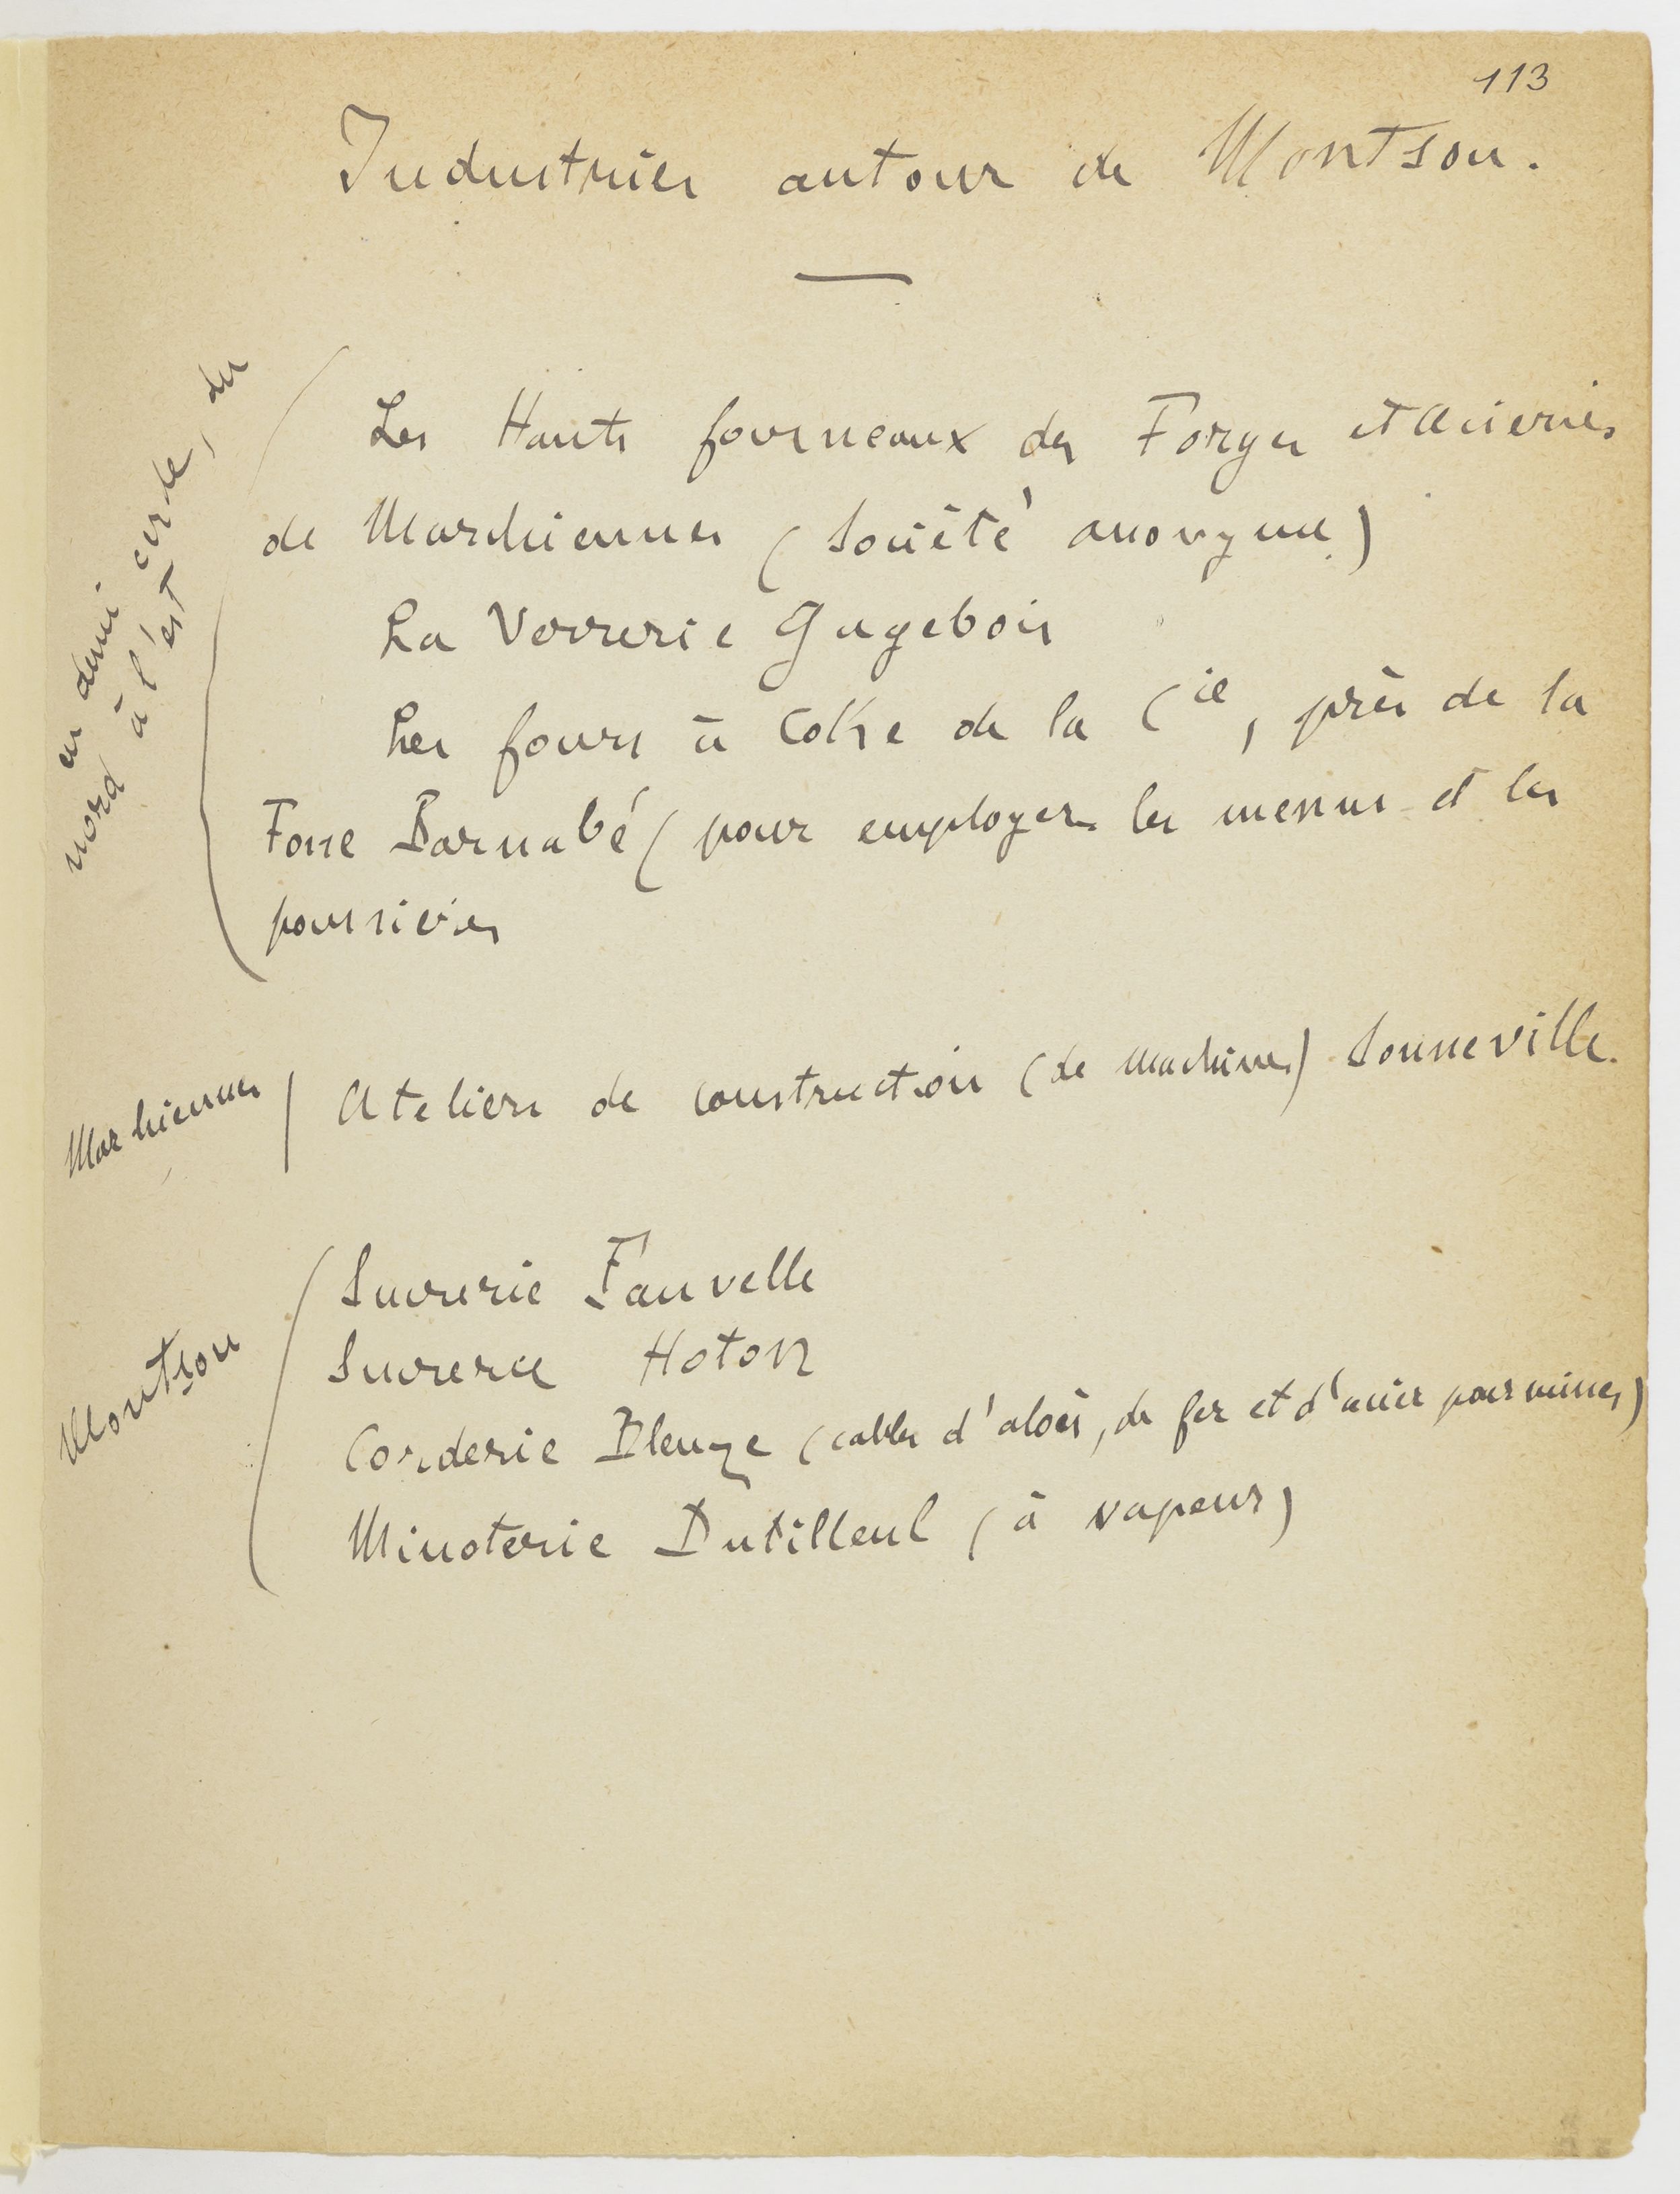 113
Industries autour de Montsou.
en demi cercle, du
nord à l'est
Les Hauts fourneaux des Forges et Acieries
de Marchiennes (Société anonyme)
La Verrerie Gagebois
Les fours à Coke de la Cie, près de la
Fosse Barnabé (pour employer les menus et les
poussières
Marchiennes
Ateliers de construction (de machines) Sonneville.
Montsou
Sucrerie Fauvelle
Sucrerie Hoton
Corderie Bleuze (cables d'aloès, de fer et d'acier pour mines)
Minoterie Dutilleul (à vapeur)